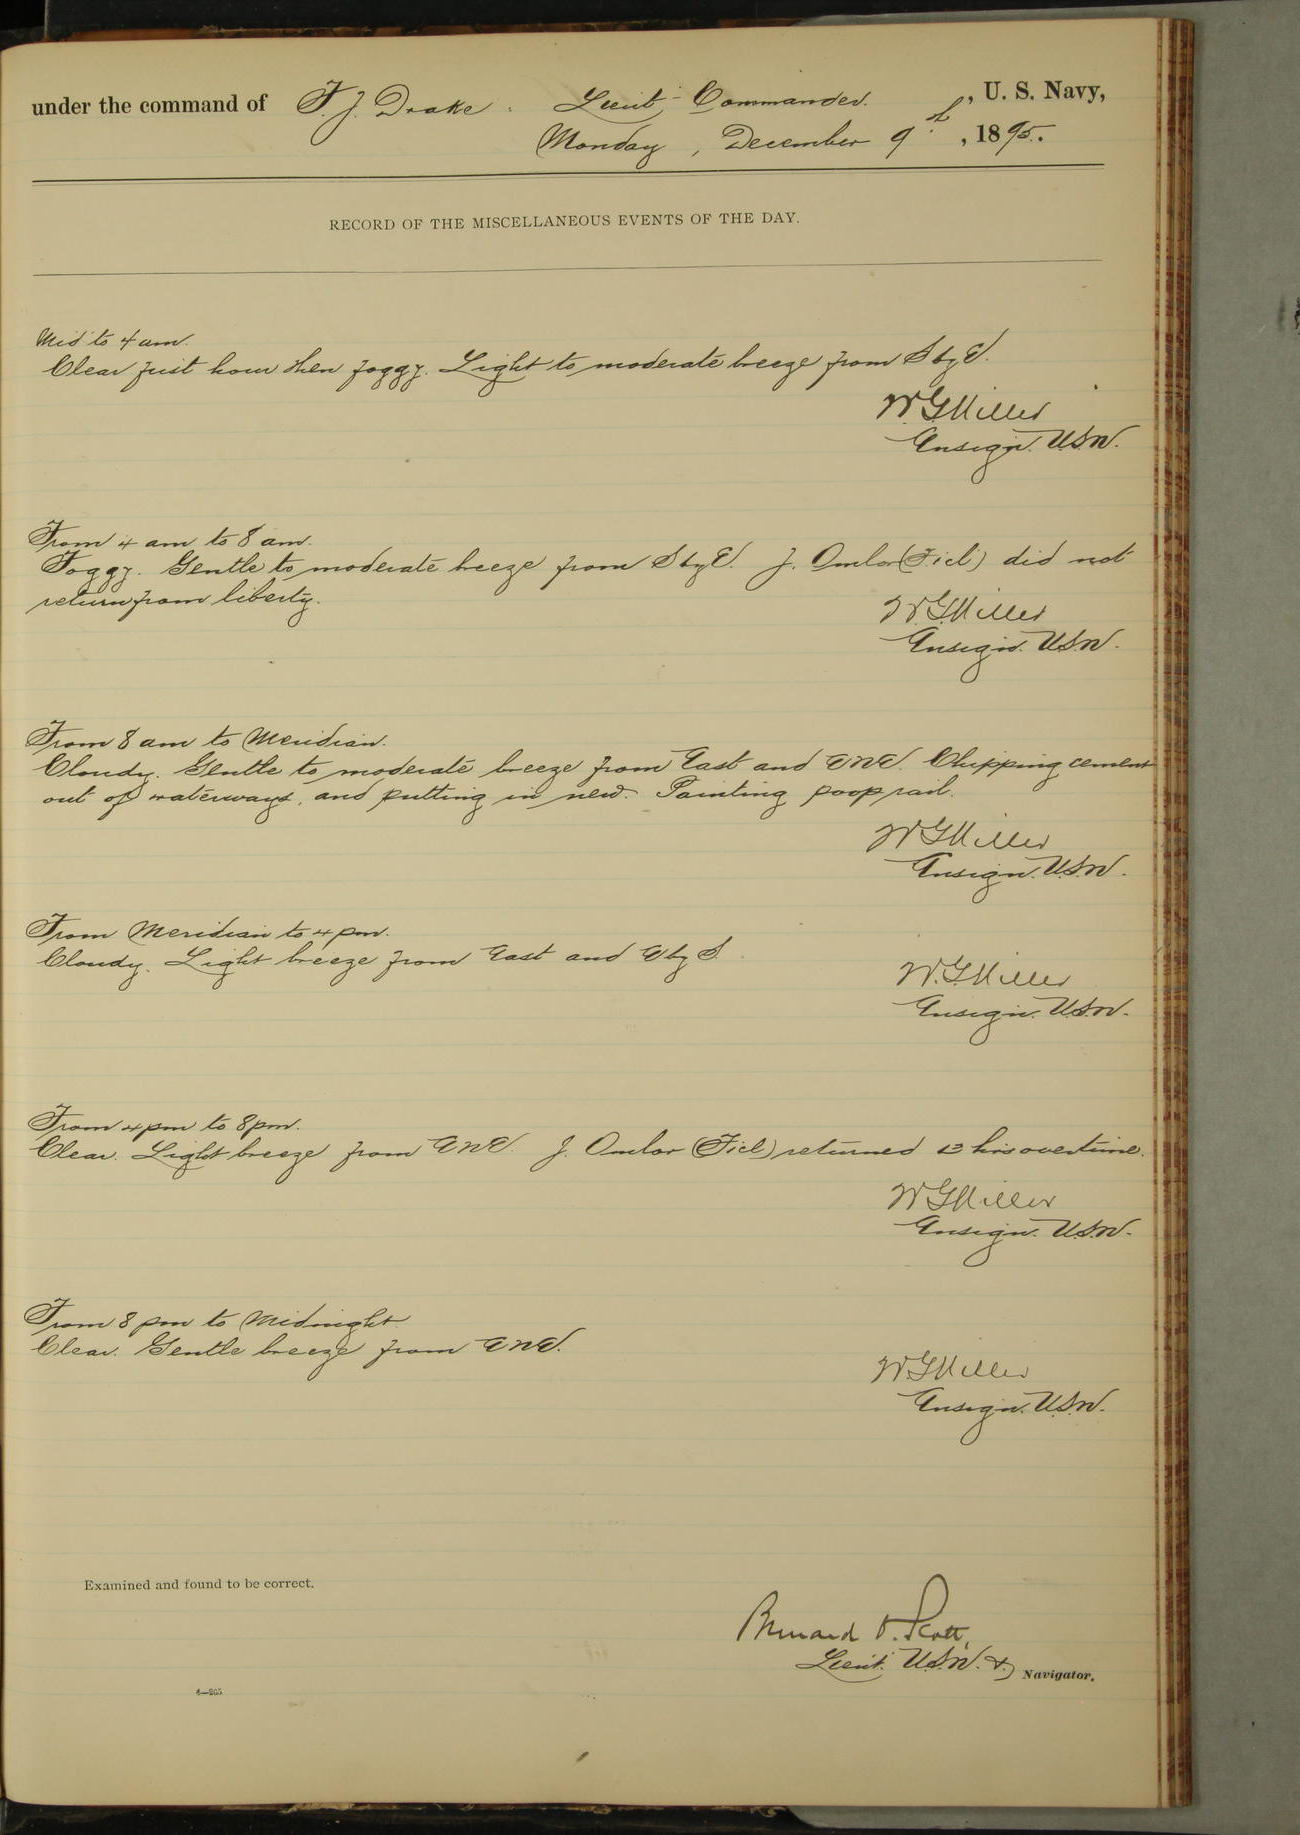 under the command of F. J. Drake. Lieut-Commander. , U. S. Navy,
Monday, December 9th, 1895.
RECORD OF THE MISCELLANEOUS EVENTS OF THE DAY.
Mid to 4 am.
Clear first hour then foggy. Light to moderate breeze from S by E.
W. G. Miller
Ensign. U.S.N.
From 4 am to 8 am.
Foggy. Gentle to moderate breeze from S by E. J. Omlor (F1cl) did not
return from liberty.
W. G. Miller
Ensign. U.S.N.
From 8 am to Meridian.
Cloudy. Gentle to moderate breeze from East and ENE. Chipping cement
out of waterways, and putting in new. Painting poop rail.
W G Miller
Ensign. U.S.N.
From Meridian to 4 pm.
Cloudy. Light breeze from East and E by S.
W. G. Miller
Ensign. U.S.N.
From 4 pm to 8 pm.
Clear. Light breeze from ENE. J. Omlor (F1cl) returned 13 hrs overtime.
W G Miller
Ensign. U.S.N.
From 8 pm to Midnight.
Clear. Gentle breeze from ENE.
W G Miller
Ensign. U.S.N.
Examined and found to be correct.
Bernard O. Scott,
Lieut. U.S.N. & Navigator.